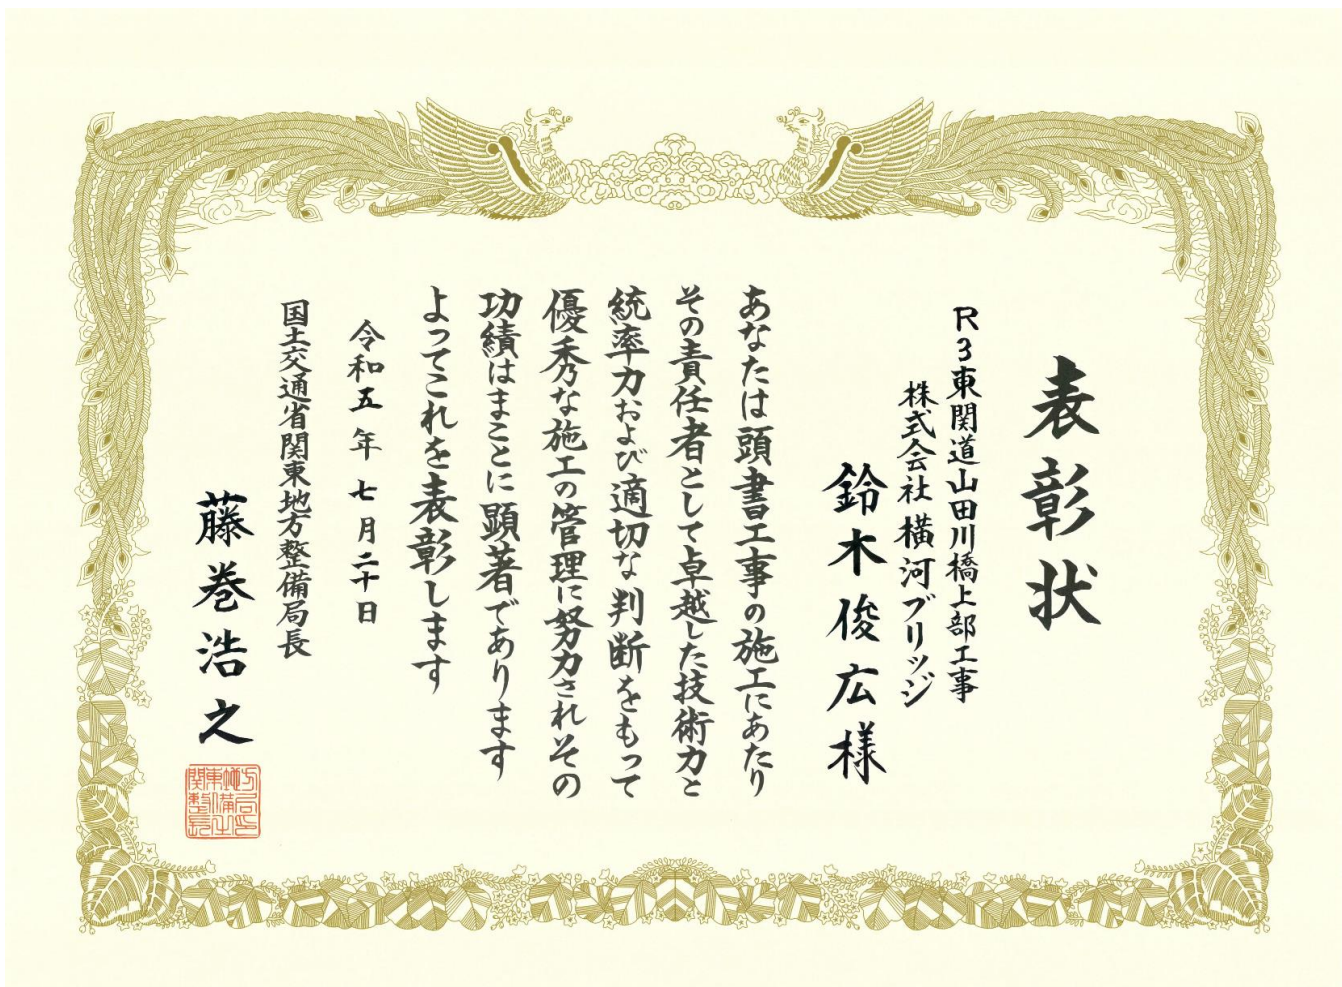 表彰状
R3東関道山田川橋上部工事
株式会社横河ブリッジ
鈴木俊広様
あなたは頭書工事の施工にあたり
その責任者として卓越した技術力と
統率力および適切な判断をもって
優秀な施工の管理に努力されその
功績はまことに顕著であります
よってこれを表彰します
令和五年七月二十日
国土交通省関東地方整備局長
藤巻浩之